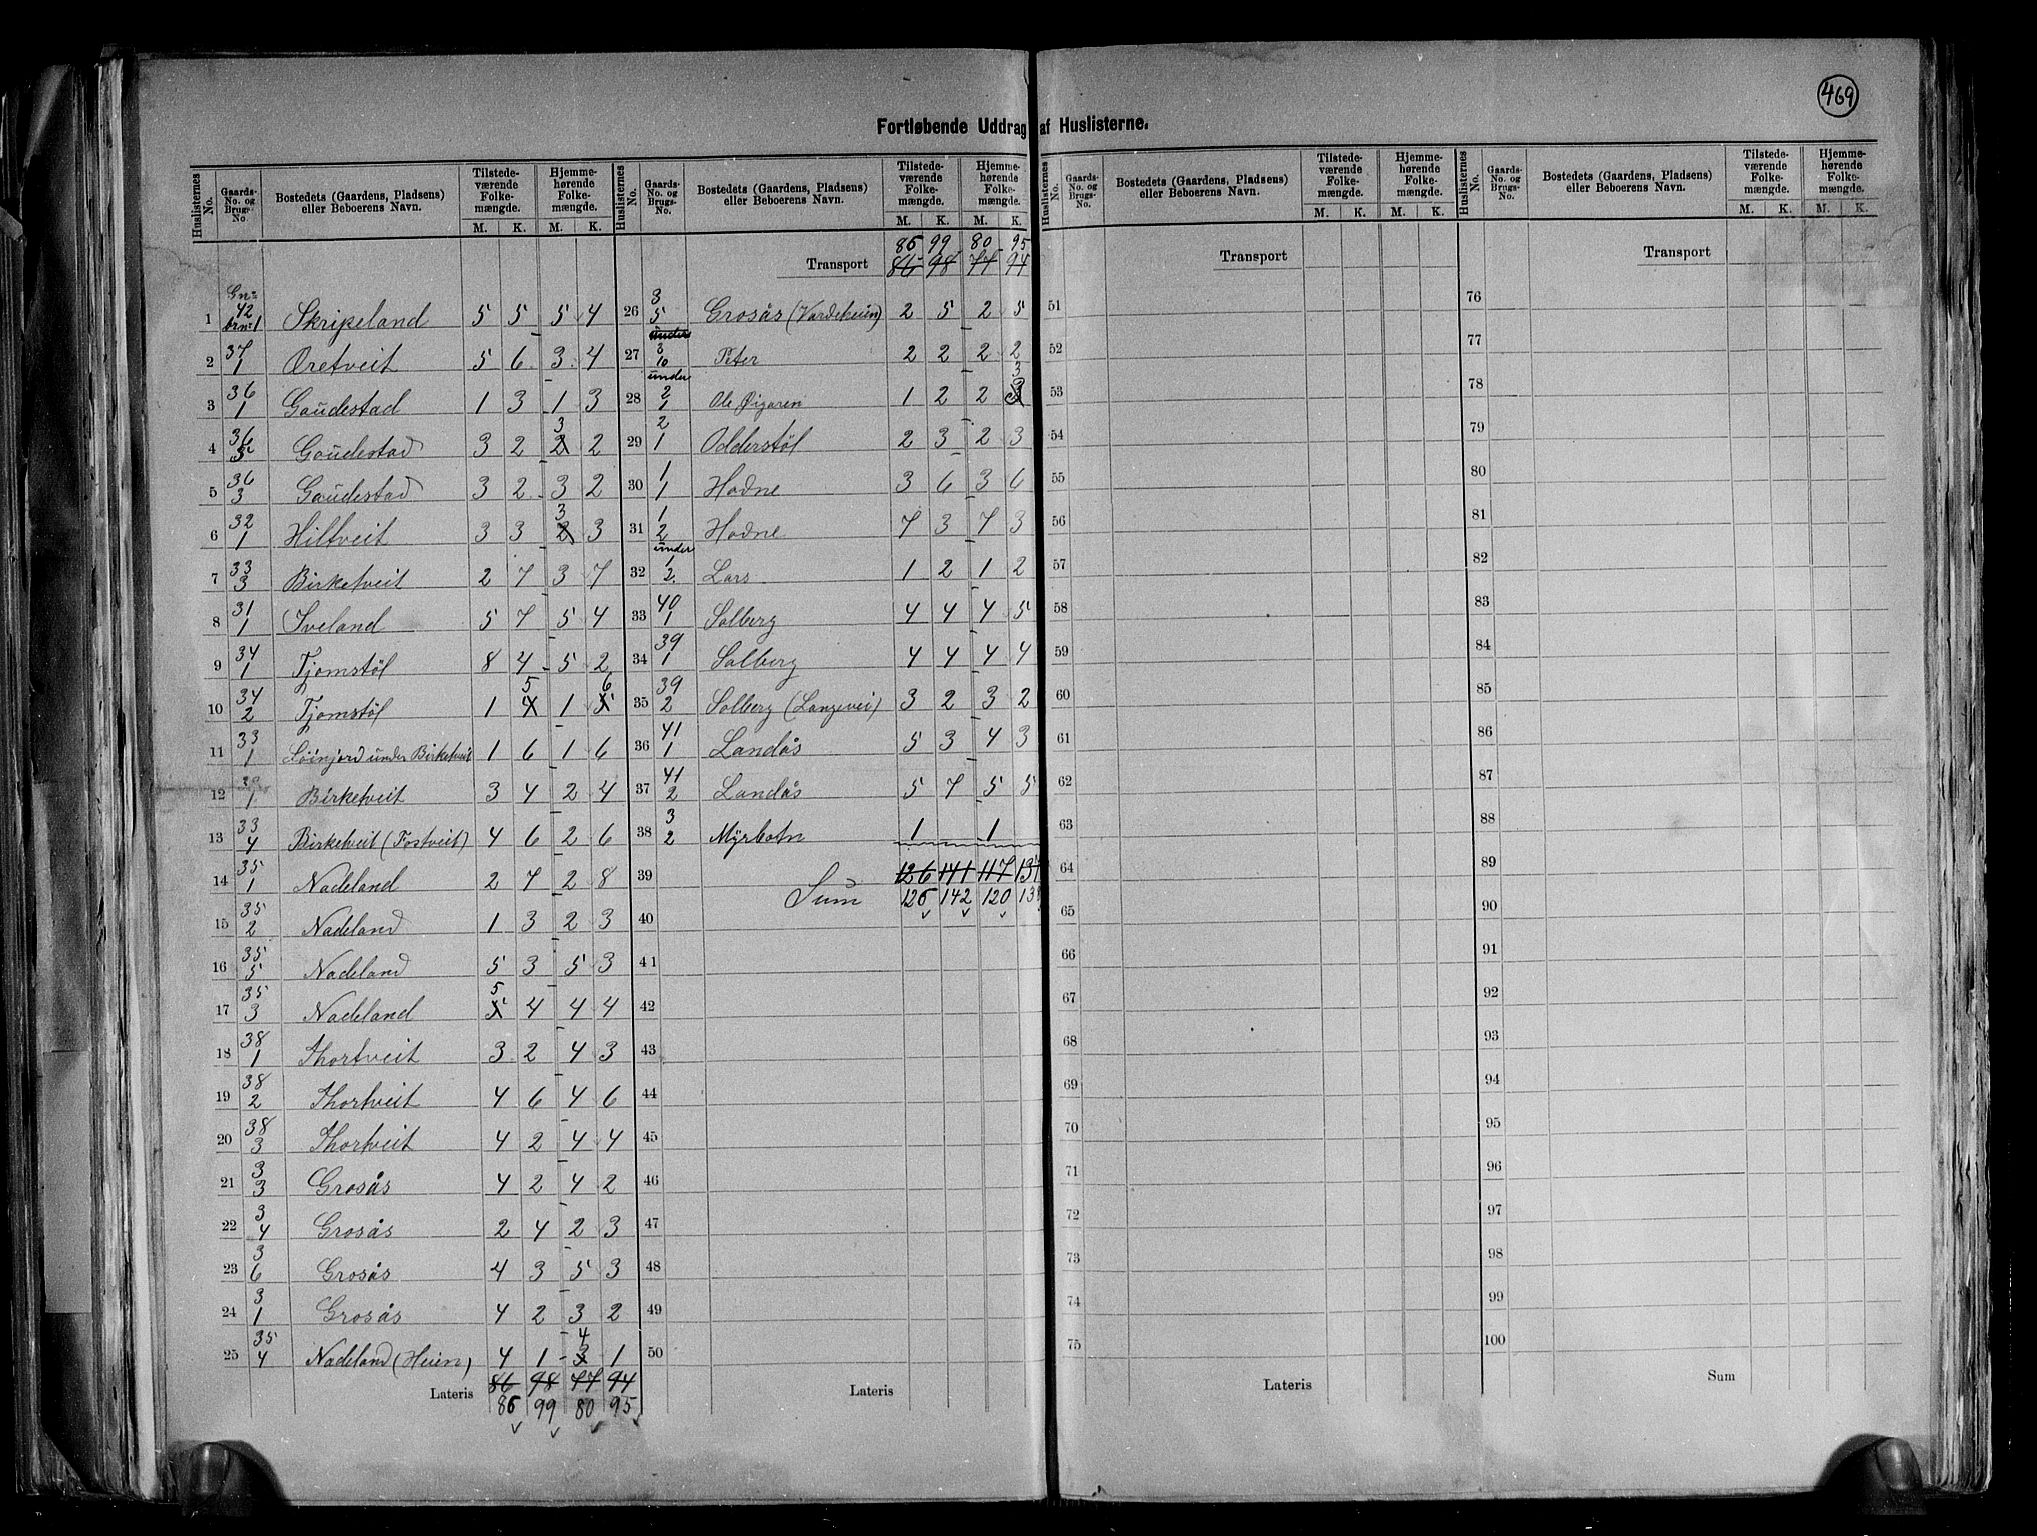 469
Fortløbende Uddrag af Huslisterne.
Huslisternes No. | Gaards-No. og Brugs-No. | Bostedets (Gaardens, Pladsens) eller Beboerens Navn. | Tilstedeværende Folkemængde. M. K. | Hjemmehørende Folkemængde. M. K.
1 Gn: 42 brn: 1 Skripeland 5 5 5 4
2 37 1 Øretveit 5 6 3 4
3 36 1 Gaudestad 1 3 1 3
4 36 5 Gaudestad 3 2 3 2
5 36 3 Gaudestad 3 2 3 2
6 32 1 Hiltveit 3 3 3 3
7 33 3 Birketveit 2 7 3 7
8 31 1 Iveland 5 7 5 4
9 34 1 Tjomstøl 8 4 5 2
10 34 2 Tjomstøl 1 5 1 6
11 33 1 under Birketveit 1 6 1 6
12 1 Birketveit 3 4 2 4
13 33 4 Birketveit (Fostveit) 4 6 2 6
14 35 1 Nadeland 2 7 2 8
15 35 2 Nadeland 1 3 2 3
16 35 5 Nadeland 5 3 5 3
17 35 3 Nadeland 5 4 4 4
18 38 1 Thortveit 3 2 4 3
19 38 2 Thortveit 4 6 4 6
20 38 3 Thortveit 4 2 4 4
21 3 3 Grosås 4 2 4 2
22 3 4 Grosås 2 4 2 3
23 3 6 Grosås 4 3 5 3
24 3 1 Grosås 4 2 3 2
25 35 4 Nadeland (Heien) 4 1 4 1
Lateris 86 98 77 94
86 99 80 95
Huslisternes No. | Gaards-No. og Brugs-No. | Bostedets (Gaardens, Pladsens) eller Beboerens Navn. | Tilstedeværende Folkemængde. M. K. | Hjemmehørende Folkemængde. M. K.
86 99 80 95
Transport 86 98 77 94
26 3 5 Grosås (Vardeheien) 2 5 2 5
27 under 3 10 Peter 2 2 2 2
28 under 2 1 Ole Øigaren 1 2 2 3
29 2 1 Odderstøl 2 3 2 3
30 1 1 Hodne 3 6 3 6
31 1 2 Hodne 7 3 7 3
32 under 1 2 Lars 1 2 1 2
33 40 1 Solberg 4 4 4 5
34 39 1 Solberg 4 4 4 4
35 39 2 Solberg (Langevei) 3 2 3 2
36 41 1 Landås 5 3 4 3
37 41 2 Landås 5 7 5 5
38 3 2 Myrbotn 1 1
39 126 141 117 137
Sum 126 142 120 138
40
41
42
43
44
45
46
47
48
49
50
Lateris
Huslisternes No. | Gaards-No. og Brugs-No. | Bostedets (Gaardens, Pladsens) eller Beboerens Navn. | Tilstedeværende Folkemængde. M. K. | Hjemmehørende Folkemængde. M. K.
Transport
51
52
53
54
55
56
57
58
59
60
61
62
63
64
65
66
67
68
69
70
71
72
73
74
75
Lateris
Huslisternes No. | Gaards-No. og Brugs-No. | Bostedets (Gaardens, Pladsens) eller Beboerens Navn. | Tilstedeværende Folkemængde. M. K. | Hjemmehørende Folkemængde. M. K.
Transport
76
77
78
79
80
81
82
83
84
85
86
87
88
89
90
91
92
93
94
95
96
97
98
99
100
Sum